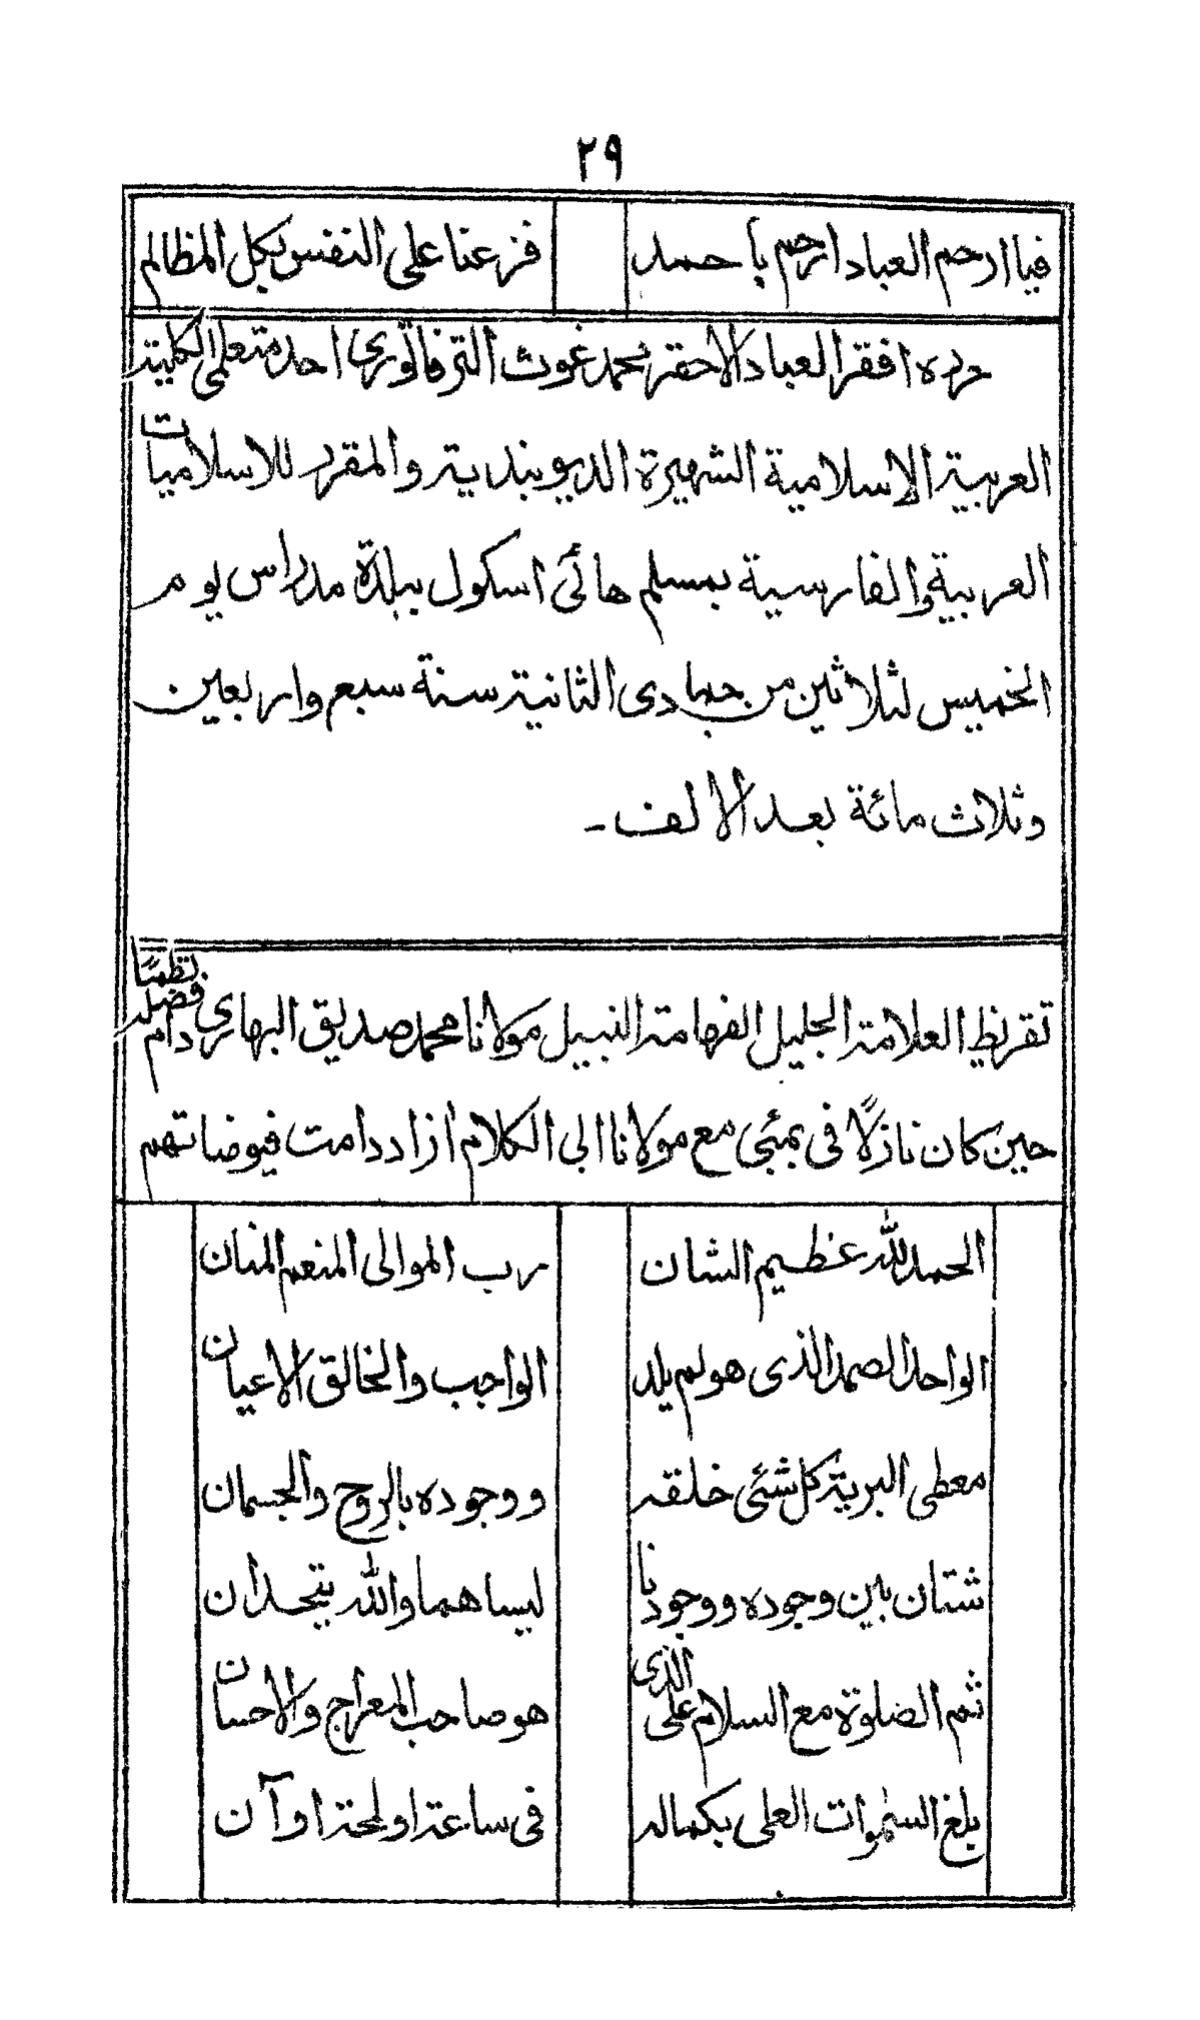 ٢٩
فيا ارحم العباد ارحم باحمد فزعنا على النفس بكل المظالم
حرره افقر العباد الاحقر محمد غوث الترفاتوري احد متعلمى الكلية
العربية الإسلامية الشهيرة الديوبندية والمقرر للاسلاميات
العربية والفارسية بمسلم هائى اسكول ببلدة مدراس يوم
الخميس لثلاثين من جمادى الثانية سنة سبع واربعين
وثلاث مائة بعد الالف ـ
تقريظ العلامة الجليل الفهامة النبيل مولانا محمد صديق البهاري دام فضله نظمًا
حين كان نازلًا فى بمئبى مع مولانا ابى الكلام ازاد دامت فيوضاتهم
الحمد لله عظيم الشان رب الموالى المنعم المنان
الواحد الصمد الذى هو لم يلد الواجب والخالق الاعيان
معطى البرية كل شئى خلقه ووجوده بالروح والجسمان
شتان بين وجوده ووجودنا ليسا هما والله يتحدان
ثم الصلوة مع السلام على الذى هو صاحب المعراج والاحسان
بلغ السموات العلى بكماله فى ساعة او لمحة او آن